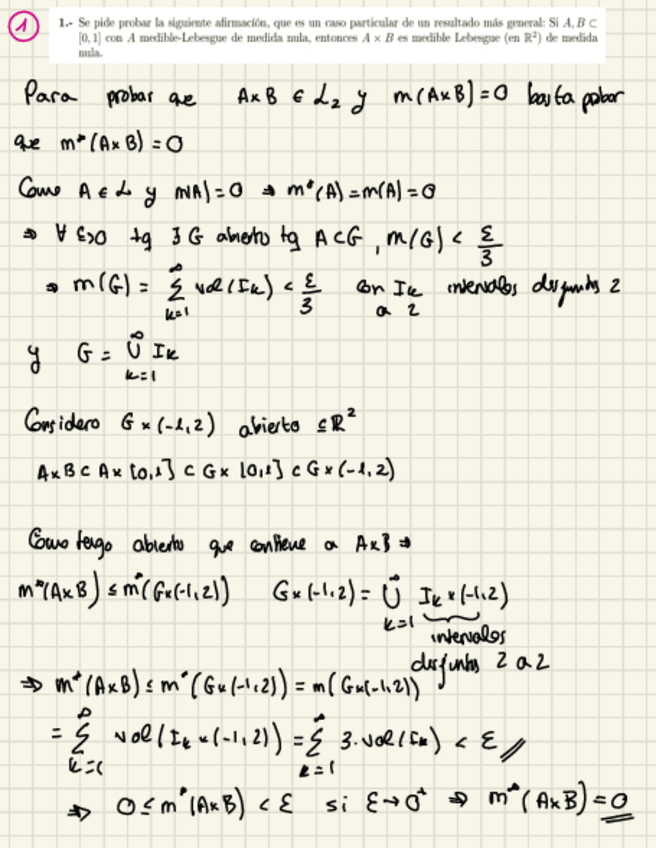 1
1.- Se pide probar la siguiente afirmación, que es un caso particular de un resultado más general: Si A, B ⊂
[0, 1] con A medible-Lebesgue de medida nula, entonces A × B es medible Lebesgue (en ℝ²) de medida
nula.
Para probar que A×B ∈ L₂ y m(A×B)=0 basta probar
que m*(A×B)=0
Como A ∈ L y m(A)=0 ⇒ m*(A)=m(A)=0
⇒ ∀ ε>0 tq ∃ G abierto tq A⊂G, m(G) < ε/3
⇒ m(G) = ∑_{k=1}^∞ vol(I_k) < ε/3 con I_k intervalos disjuntos 2
a 2
y G = ∪_{k=1}^∞ I_k
Considero G×(-1,2) abierto ⊆ ℝ²
A×B ⊂ A×[0,1] ⊂ G×[0,1] ⊂ G×(-1,2)
Como tengo abierto que contiene a A×B ⇒
m*(A×B) ≤ m*(G×(-1,2)) G×(-1,2) = ∪_{k=1}^∞ I_k×(-1,2)
intervalos
disjuntos 2 a 2
⇒ m*(A×B) ≤ m*(G×(-1,2)) = m(G×(-1,2))
= ∑_{k=1}^∞ vol(I_k×(-1,2)) = ∑_{k=1}^∞ 3·vol(I_k) < ε //
⇒ 0 ≤ m*(A×B) < ε si ε→0⁺ ⇒ m*(A×B)=0